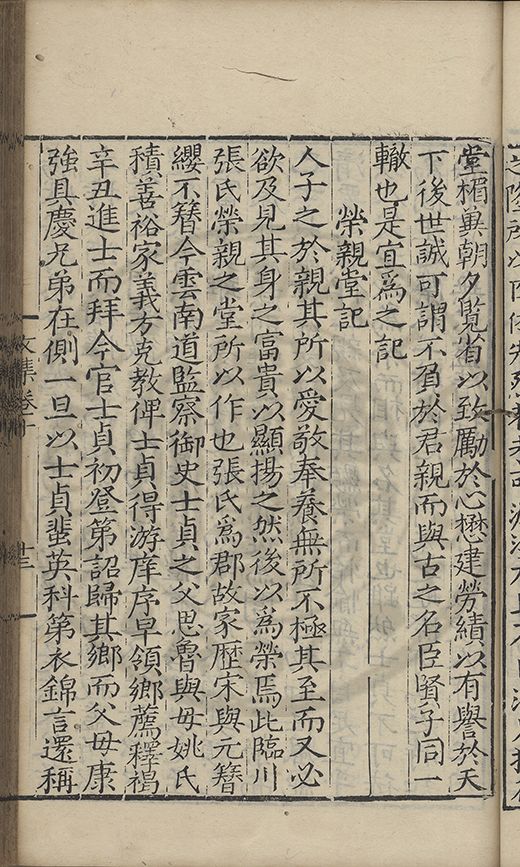 堂楣兾朝夕覽省以致勵於心懋建勞績以有譽於天
下後世誠可謂不負於君親而與古之名臣賢子同一
轍也是宜爲之記
榮親堂記
人子之於親其所以愛敬奉養無所不極其至而又必
欲及見其身之富貴以顯揚之然後以爲榮焉此臨川
張氏榮親之堂所以作也張氏爲郡故家歴宋與元簪
纓不簪今雲南道監察御史士貞之父思魯與母姚氏
積善裕家義方克教俾士貞得游庠序早領鄉薦釋褐
辛丑進士而拜今官士貞初登第詔歸其鄉而父母康
強具慶兄弟在側一旦以士貞蜚英科第衣錦言還稱
文集卷十
廿三